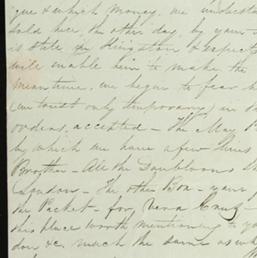 que & which Money, we understa
sold here, the other day, by your
is still
will enable him to make the
meantime, we began to fear h
(we trust only temporary) in
orders, accepted - The May P
by which we have a few lines
Brother - All the Doubloons
London - The other Box - your
the Packet - for Vera Cruz -
this place worth mentioning to yo
don &c. much the same as wh